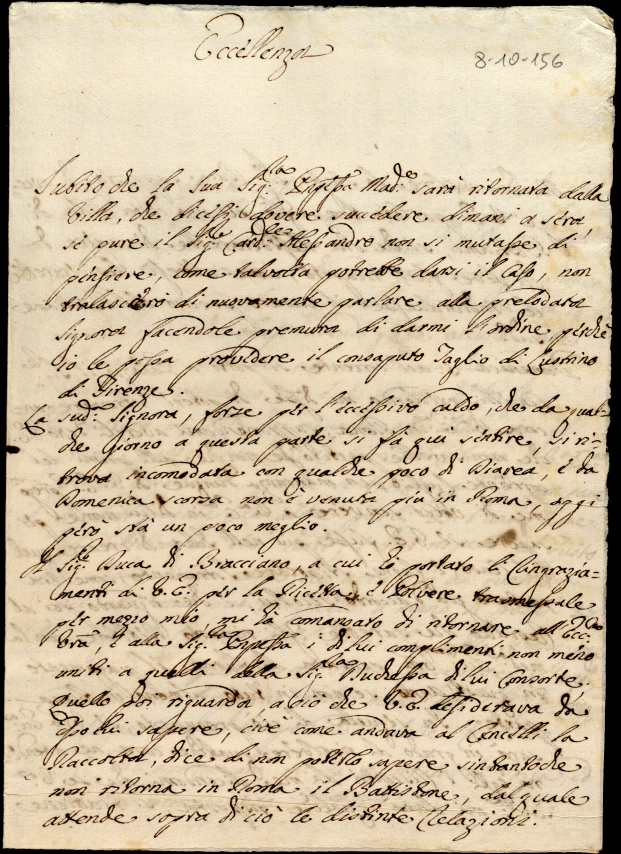 Eccellenza
8-10-156
Subito che la sua Sig.ra Ppessa Mad.e sarà ritornata dalla
Villa, che dicesi dovere succedere dimani a sera
se pure il Sig.r Card.le Alessandro non si mutasse di
pensiere, come talvolta potrebbe darsi il caso, non
tralascierò di nuovamente parlare alla prelodata
Signora facendole premura di darmi l'ordine perchè
io le possa provedere il consaputo Taglio di Lustrino
di Firenze.
La sud.a Signora, forze per l'eccessivo caldo, che da qual-
che giorno a questa parte si fà qui sentire, si ri-
trova incomodata con qualche poco di Diarea, è da
Domenica scorsa non è venuta più in Roma, oggi
però stà un poco meglio.
Il Sig.re Duca di Bracciano, a cui hò portato li Ringrazia-
menti di V.E. per la Ricetta, è Polvere trasmessale
per mezzo mio, mi hà comandato di ritornare all'Ecc.za
Vrà, è alla Sig.ra Ppessa i di lui complimenti non meno
uniti a quelli della Sig.ra Duchessa di lui Consorte.
Quello poi riguarda, a ciò che V.E. desiderava da
Esso lui sapere, cioè come andava al Cancelli la
Raccolta, dice di non poterlo sapere sintantoche
non ritorna in Roma il Battistone, dal quale
attende sopra di ciò le distinte Relazioni.